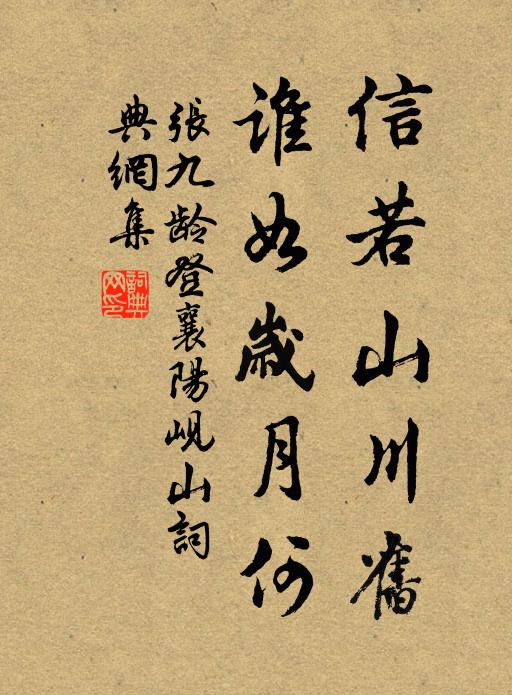 信若山川舊
誰如歲月何
張九龄登襄陽峴山詞
典網集
詞典网印